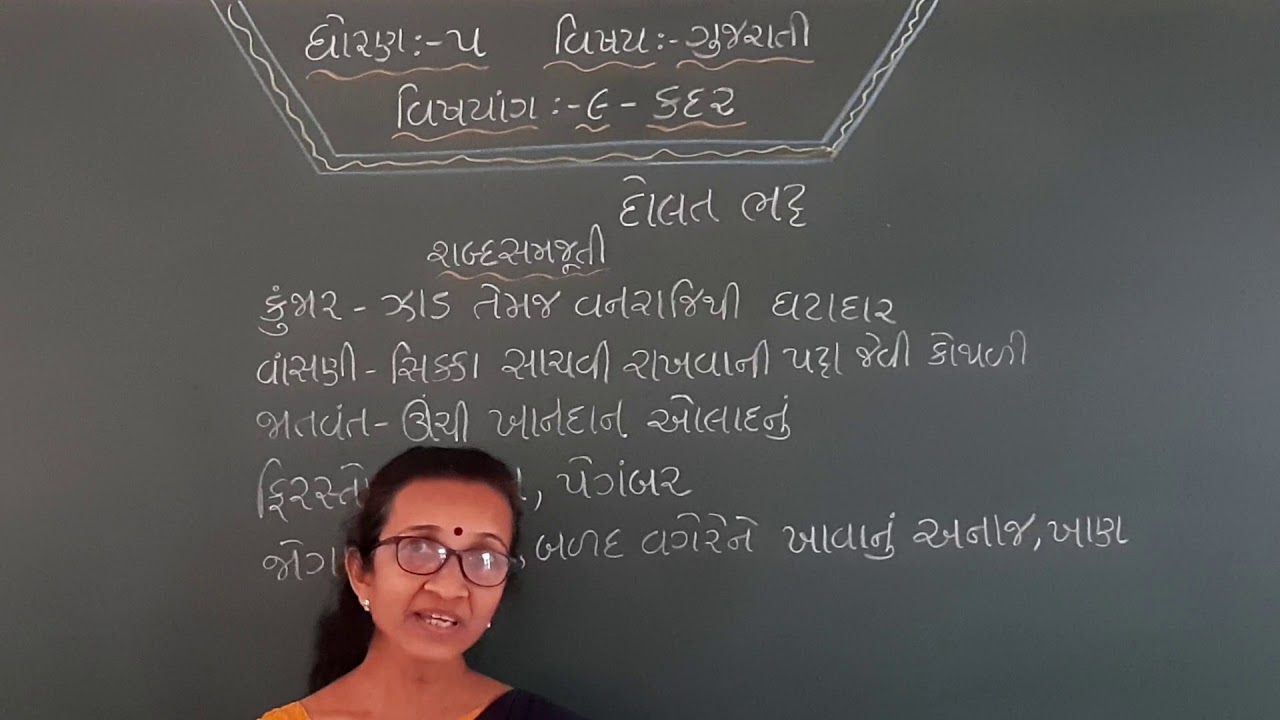 ધોરણ :- ૫ વિષય :- ગુજરાતી
વિષયાંગ :- ૯ - કદર
દોલત ભટ્ટ
શબ્દસમજૂતી
કુંજાર - ઝાડ તેમજ વનરાજિથી ઘટાદાર
વાંસણી - સિક્કા સાચવી રાખવાની પટ્ટા જેવી કોથળી
જાતવંત - ઊંચી ખાનદાન ઓલાદનું
, પેગંબર
, બળદ વગેરેને ખાવાનું અનાજ, ખાણ